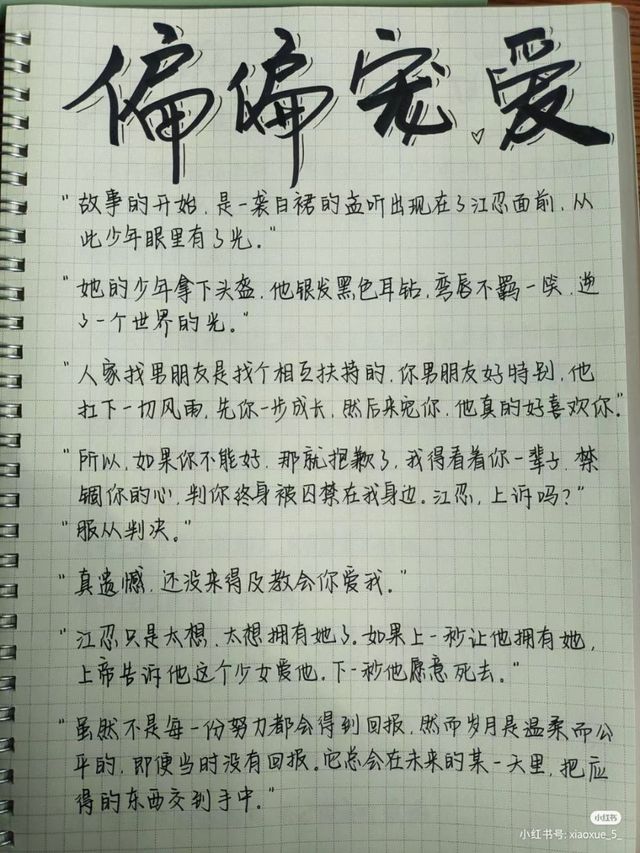 偏偏宠爱
"故事的开始，是一袭白裙的孟听出现在了江忍面前，从
此少年眼里有了光。"
"她的少年拿下头盔，他银发黑色耳钻，弯唇不羁一笑，逆
了一个世界的光。"
"人家找男朋友是找个相互扶持的，你男朋友好特别，他
扛下一切风雨，先你一步成长，然后来宠你，他真的好喜欢你。"
"所以，如果你不能好，那就抱歉了，我得看着你一辈子，禁
锢你的心，判你终身被囚禁在我身边。江忍，上诉吗？"
"服从判决。"
"真遗憾，还没来得及教会你爱我。"
"江忍只是太想，太想拥有她了。如果上一秒让他拥有她，
上帝告诉他这个少女爱他，下一秒他愿意死去。"
"虽然不是每一份努力都会得到回报，然而岁月是温柔而公
平的，即便当时没有回报。它总会在未来的某一天里，把应
得的东西交到手中。"
小红书
小红书号: xiaoxue_5_